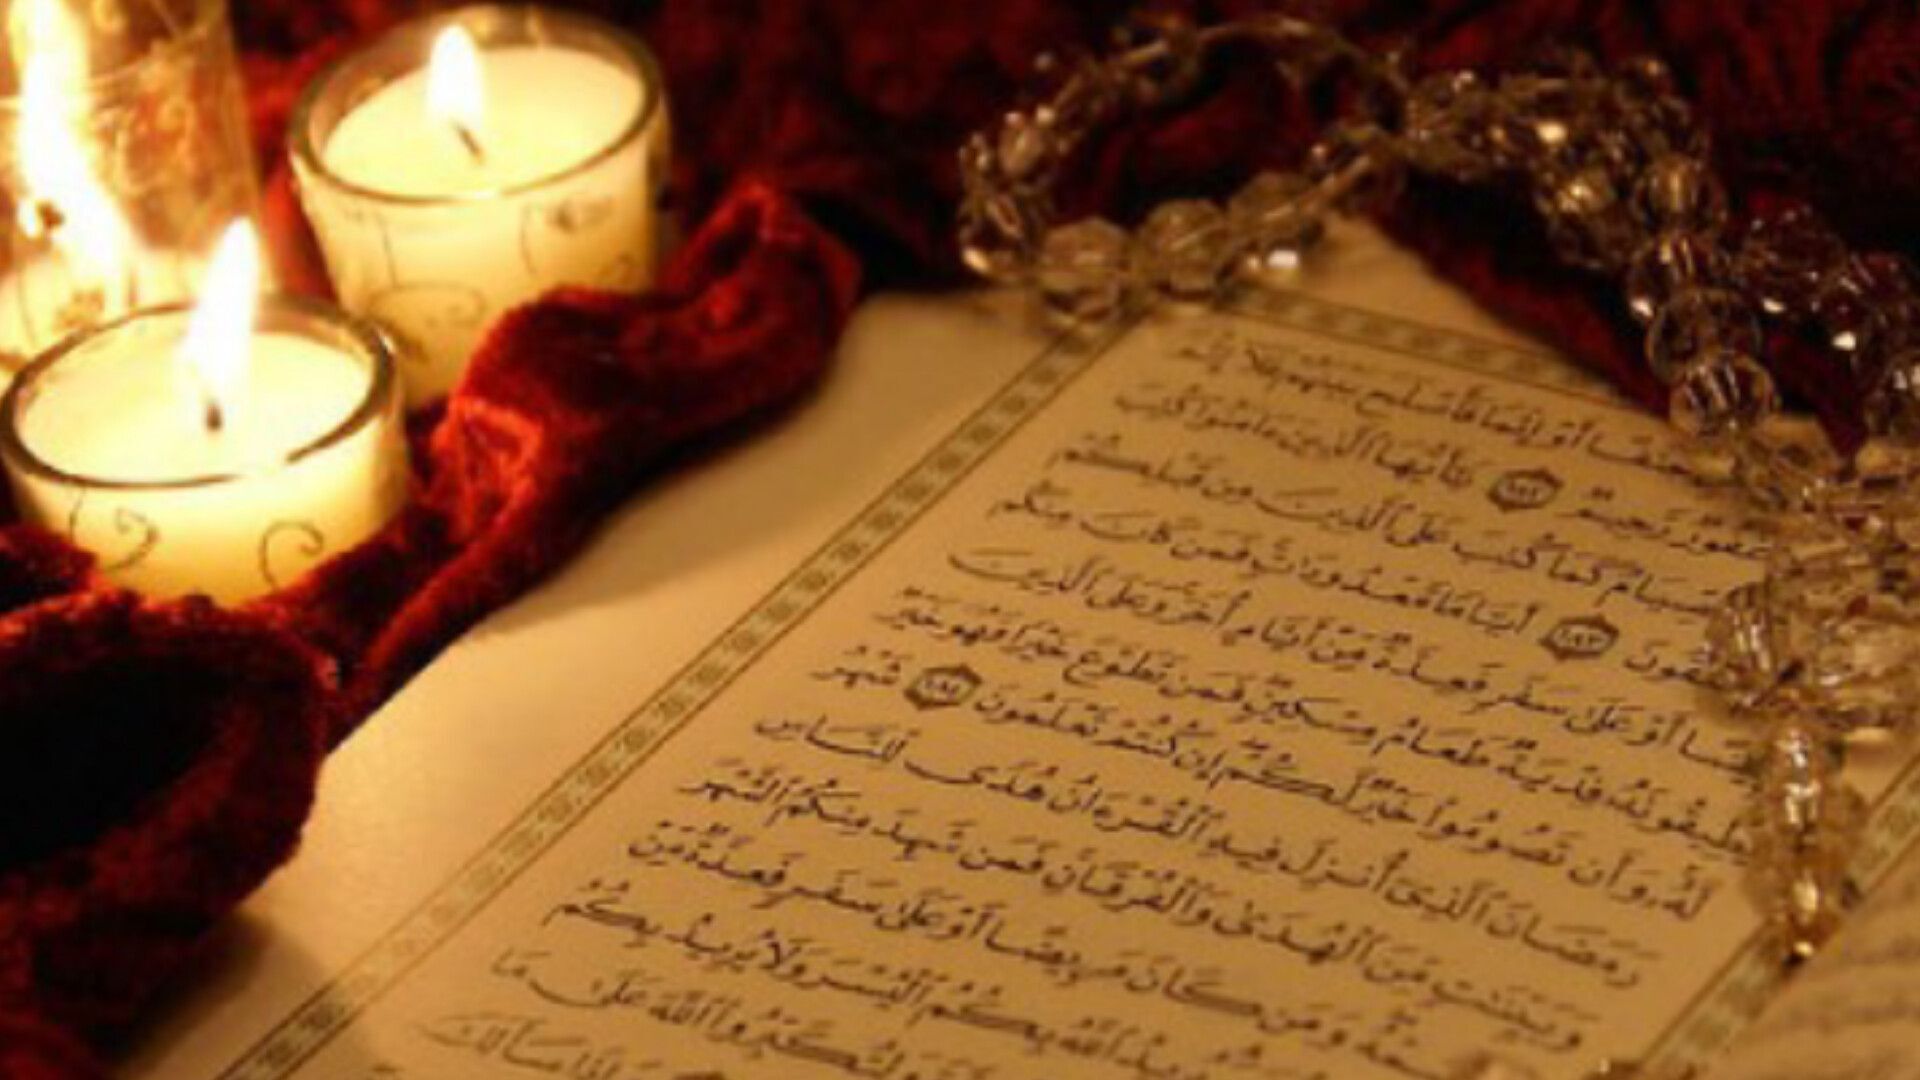 جنفا أو إثما فأصلح بينهم فلا إثم
غفور رحيم ١٨٢ يأيها الذين ءامنوا كتب
الصيام كما كتب على الذين من قبلكم
تتقون ١٨٣ أياما معدودات فمن كان منكم
مريضا أو على سفر فعدة من أيام أخر وعلى الذين
يطيقونه فدية طعام مسكين فمن تطوع خيرا فهو خير
له وأن تصوموا خير لكم إن كنتم تعلمون ١٨٤ شهر
رمضان الذي أنزل فيه القرءان هدى للناس
وبينت من الهدى والفرقان فمن شهد منكم الشهر
ومن كان مريضا أو على سفر فعدة من
يريد الله بكم اليسر ولا يريد بكم
ولتكبروا الله على ما
وإذا سألك